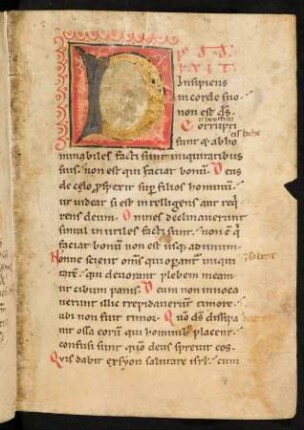 D
Insipiens
in corde suo.
non est ds.
Corrupti
sunt & abho
minabiles facti sunt in iniquitatibus
suis. non est qui faciat bonū. Deus
de celo ꝓspexit sup filios hominū.
ut videat si est intelligens aut req
rens deum. Omnes declinaverunt
simul inutiles facti sunt. non ē q
faciat bonū non est usq; ad unum.
Nonne scient omēs qui opant iniqui
tatē. qui devorant plebem meam
ut cibum panis. Deum non invoca
verunt illic trepidaverunt timore.
ubi non fuit timor. Quō ds dissipa
vit ossa eorū qui hominib; placent.
confusi sunt quō deus sprevit eos.
Qvis dabit ex syon salutare isrl. cum